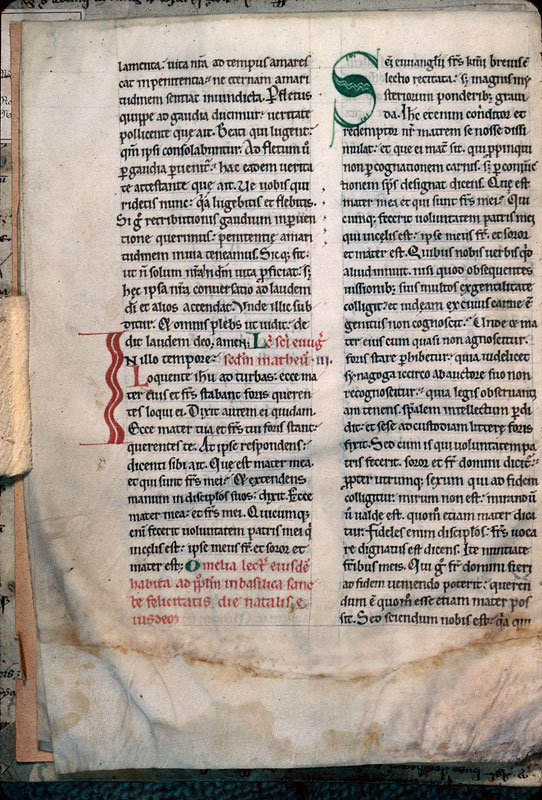 lamenta. vita nr̄a ad tempus amares
cat in penitentia. ne eternam amari
tudinem sentiat in vindicta. P fletus
quippe ad gaudia ducimur. veritate
pollicente que ait. Beati qui lugent.
qm̄ ipsi consolabuntur. Ad fletum ū
p̲ gaudia puenit̄. hac eadem verita
te attestante que ait. Ve vobis qui
ridetis nunc. qa lugebitis et flebitis.
Si g̊ retributionis gaudium in pven
tione querimus. penitentie amari
tudinem in via teneamus. Sicq; fit.
ut n̄ solum nr̄a in dm̄ vita proficiat. s;
hec ipsa nr̄a conversatio ad laudem
di et alios accendat. Unde illic sub
ditur. Et omnis plebs ut vidit. de
dit laudem deo. amen. Lc̄ sci euuḡ
IN illo tempore. scdm matheū. iii.
Loquente ihu ad turbas. ecce ma
ter eius et frs̄ stabant foris queren
tes loqui ei. Dixit autem ei quidam.
Ecce mater tua et frs̄ tui foris stant.
querentes te. At ipse respondens.
dicenti sibi ait. Que est mater mea.
et qui sunt frs̄ mei. Et extendens
manum in discip̄los suos. dixit. Ecce
mater mea. et frs̄ mei. Quicumq;
eni fecerit voluntatem patris mei q̇
in celis est. ipse meus fr̄ et soror et
mater est. Omelia lect̄ eiusdē
habita ad pplm in basilica sanc
te felicitatis die natalis e
iusdem
Sci euuangelii frs̄ kmi brevis ē
lectio recitata. s; magnis my
steriorum ponderib; gravi
da. Ihc etenim conditor et
redemptor nr̄ matrem se nosse dissi
mulat. et que ei mat̄ sit. qui ppinqui
non p cognationem carnis. s; p coniūc
tionem sp̄s designat dicens. Que est
mater mea et qui sunt frs̄ mei. Qui
cumq; fecerit voluntatem patris mei
qui in celis est. ipse meus fr̄. et soror
et mater est. Quibus nobis verbis qd
aliud innuit. nisi quod obsequentes
iussionib; suis multos ex gentilitate
colligit. et iudeam ex cuius carne ē
genitus non cognoscit. Unde et ma
ter eius cum quasi non agnoscitur.
foris stare phibetur. quia videlicet
synagoga iccirco ab auctore suo non
recognoscitur. quia legis observanti
am tenens. sp̄alem intellectum pdi
dit. et sese ad custodiam littere foris
fixit. Sed cum is qui voluntatem pa
tris fecerit. soror et fr̄ domini dicit̄.
ppter utrumq; sexum qui ad fidem
colligitur. mirum non est. mirandū
ū valde est. quom̄ etiam mater dici
tur. Fideles enim discip̄los. frs̄ voca
re dignatus est dicens. Ite nuntiate
fribus meis. Qui g̊ fr̄ domini fieri
ad fidem veniendo poterit. queren
dum ē quom̄ esse etiam mater pos
sit. Sed sciendum nobis est. qa qui